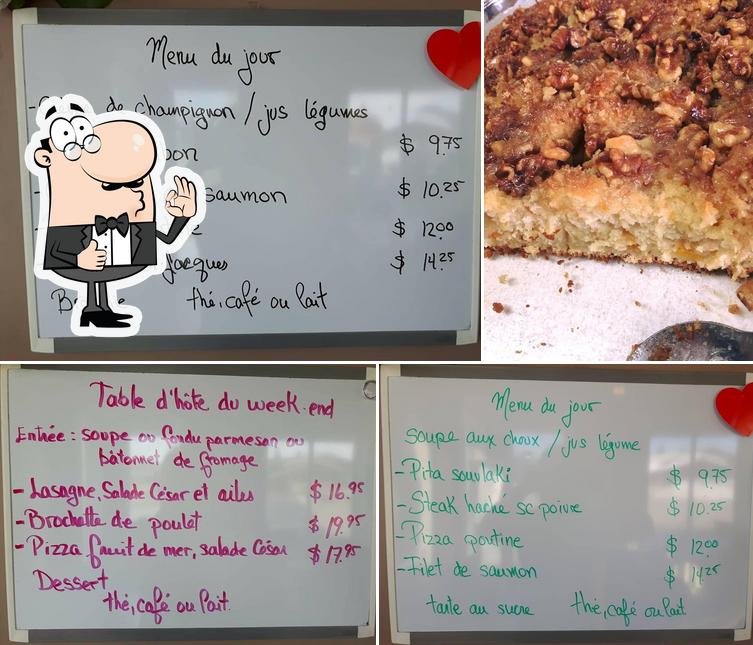 Menu du jour
de champignon / jus légumes
$ 9.75
saumon $ 10.25
$ 12.00
Jacques $ 14.25
thé, café ou lait
Table d'hôte du week-end
Entrée : soupe ou fondu parmesan ou
bâtonnet de fromage
- Lasagne, Salade César et ailes $ 16.95
- Brochette de poulet $ 19.95
- Pizza fruit de mer, salade César $ 17.95
Dessert
thé, café ou lait
Menu du jour
soupe aux choux / jus légume
- Pita souvlaki $ 9.75
- Steak haché sc poivre $ 10.25
- Pizza poutine $ 12.00
- Filet de saumon $ 14.25
tarte au sucre thé, café ou lait